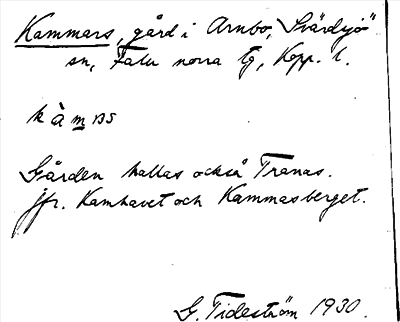 Kammars, gård i Arnbo, Svärdsjö
sn, Falu norra tg, Kopp. l.
Gården kallas också Tranas.
jfr. Kamhavet och Kammasberget.
G. Tideström 1930.